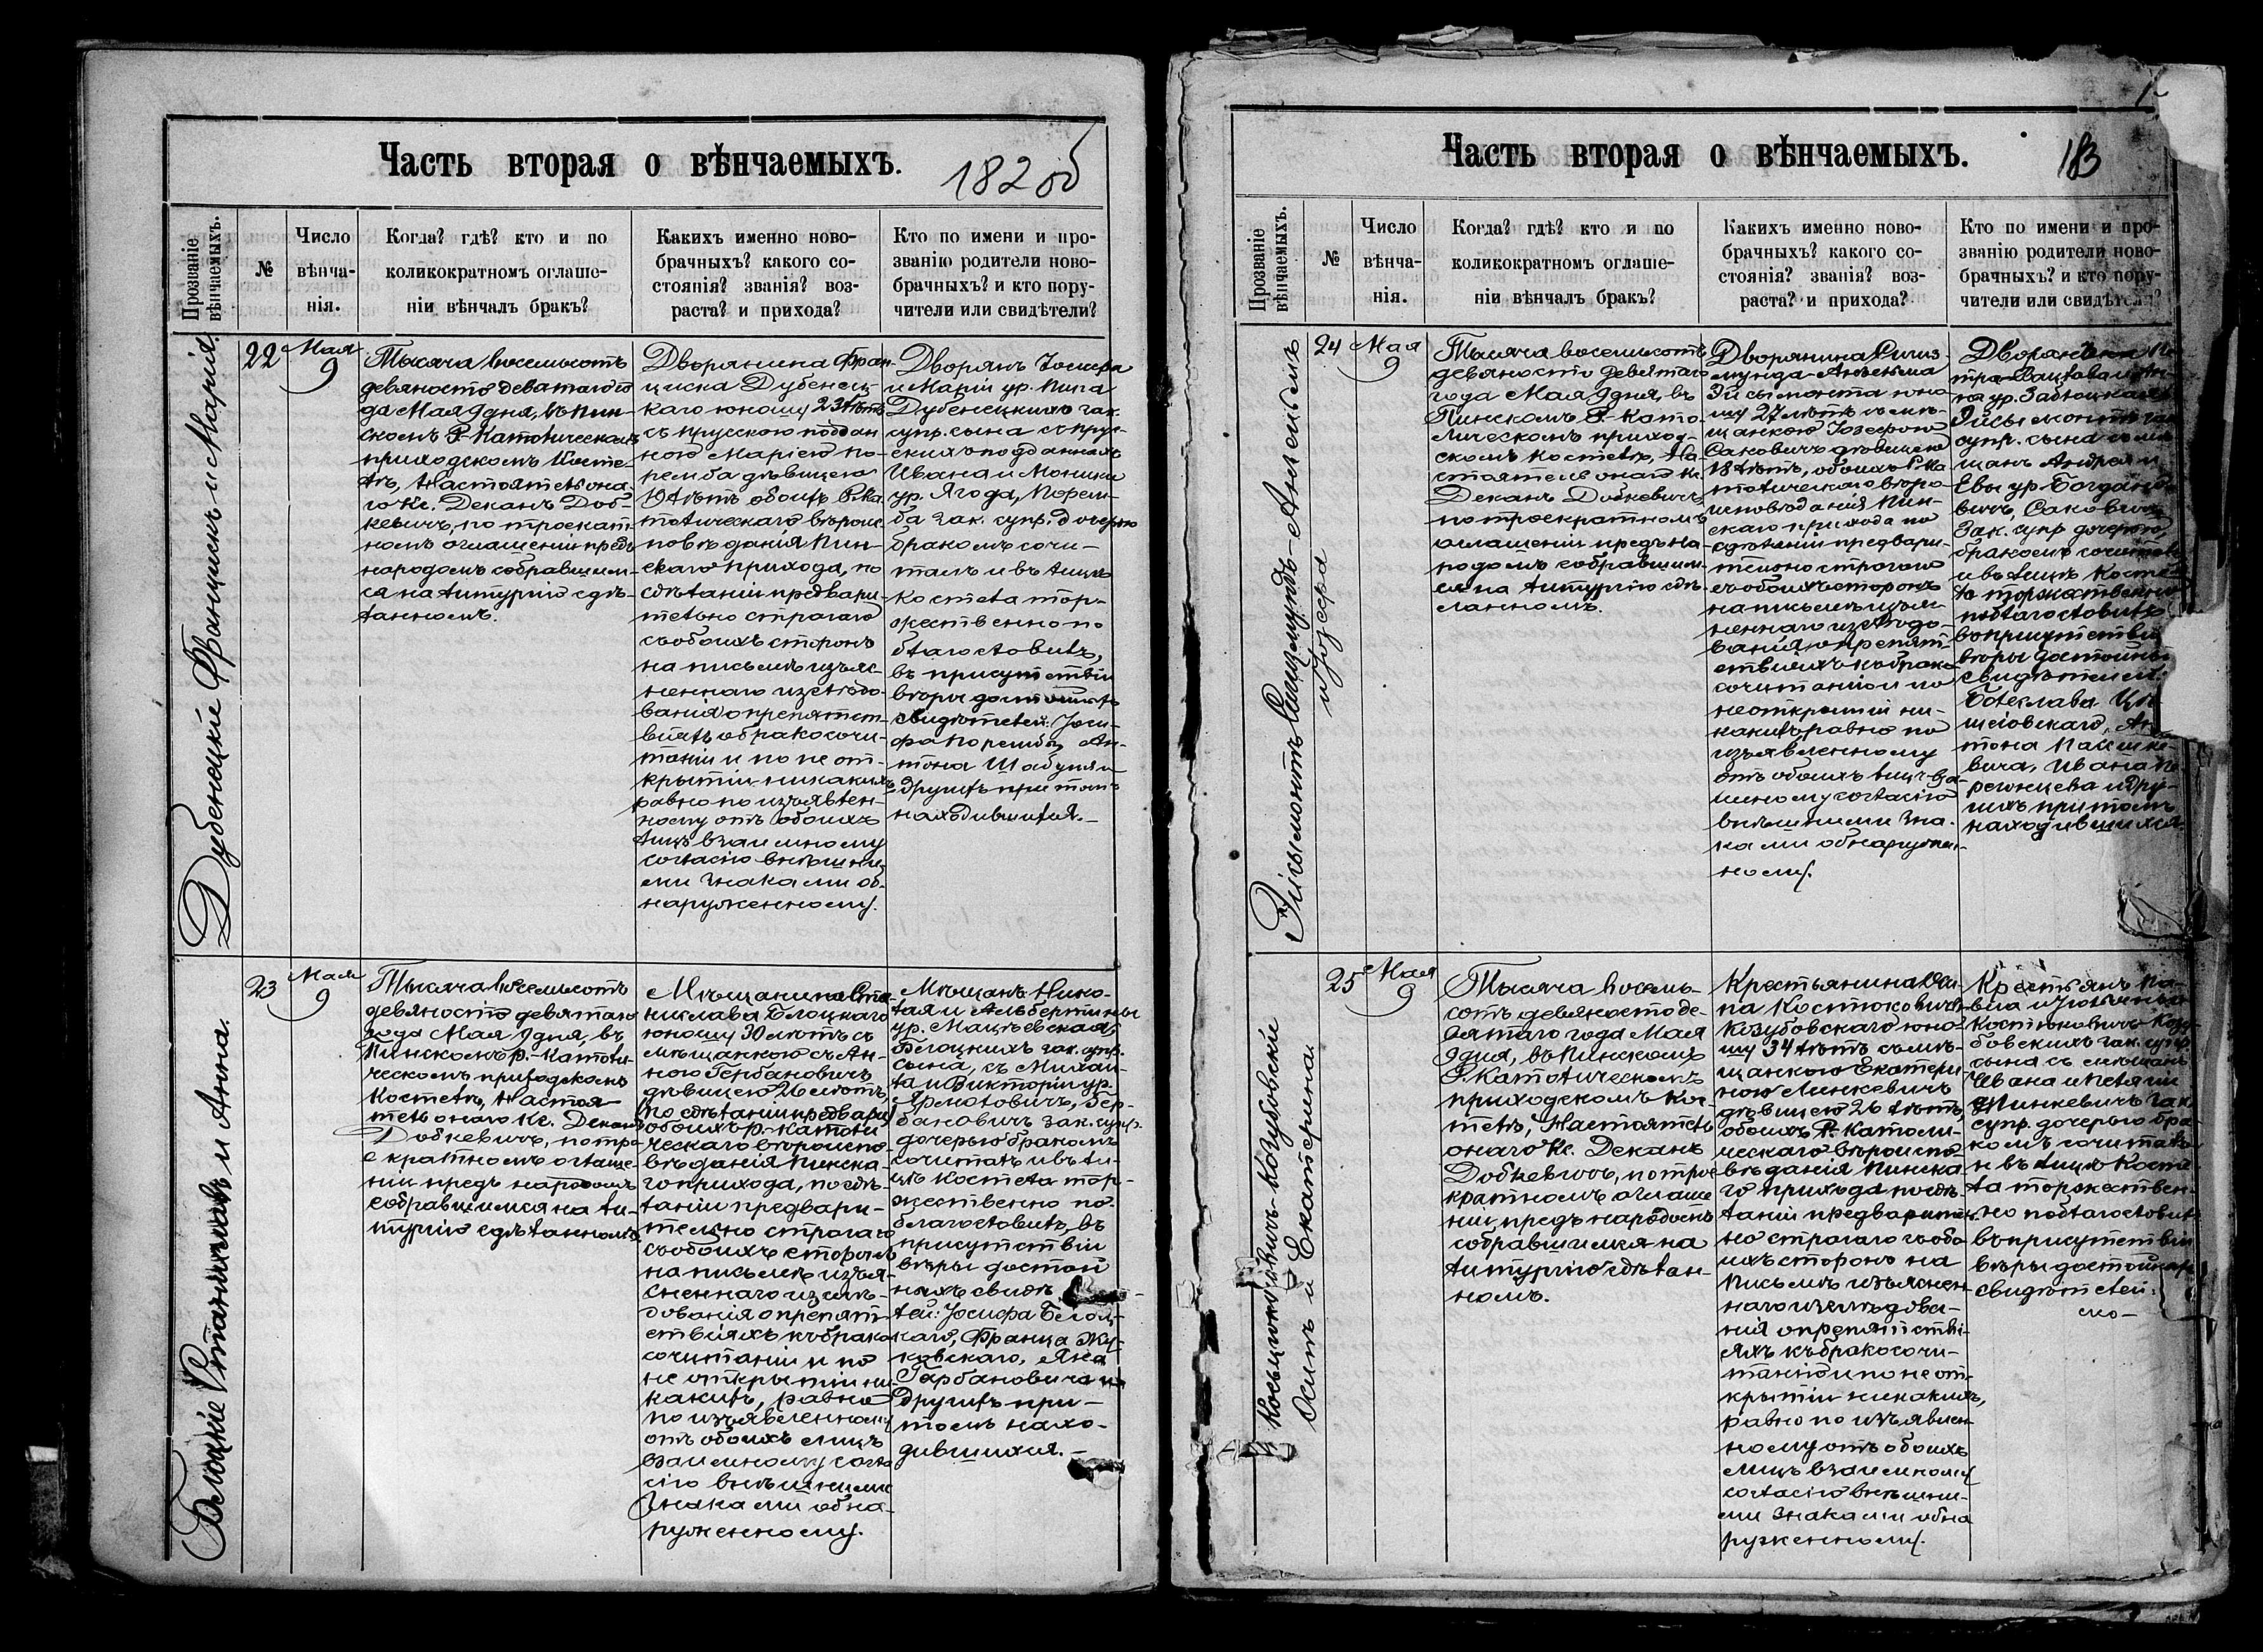 Часть вторая о вѣнчаемыхъ.
182 об
Прозваніе вѣнчаемыхъ.
№
Число вѣнча-нія.
Когда? гдѣ? кто и по
коликократномъ оглаше-
ніи вѣнчалъ бракъ?
Какихъ именно ново-
брачныхъ? какого со-
стоянія? званія? воз-
раста? и прихода?
Кто по имени и про-
званію родители ново-
брачныхъ? и кто пору-
чители или свидѣтели?
Дубенецкіе Францискъ и Марія.
22
Мая
9
Тысяча восемьсотъ
девяносто девятаго го
да Мая 9 дня, въ Пин-
скомъ Р. Католическомъ
приходскомъ Косте-
лѣ, Настоятель она-
го Кс. Деканъ Доб-
кевичъ, по троекрат
номъ оглашеніи предъ
народомъ собравшим-
ся на литургію сдѣ-
ланномъ.
Дворянина Фран-
циска Дубенец-
каго юношу 23 лѣтъ
съ прусскою поддан
ною Маріею По-
ремба дѣвицею
19 лѣтъ обоихъ Р. Ка
толическаго вѣроис
повѣданія Пин-
скаго прихода, по
сдѣланіи предвари-
тельно строгаго
съ обоихъ сторонъ
на письмѣ изъяс
неннаго изслѣдо-
ванія о препятст-
віяхъ о бракосочи-
таніи и по не от-
крытіи никакихъ,
равно по изъявлен-
ному отъ обоихъ
лицъ взаимному
согласію внѣшни-
ми знаками об-
наруженному.
Дворянъ Іосифа
и Маріи ур. Пига
Дубенецкихъ зак.
супр. сына съ прус-
скихъ подданныхъ
Ивана и Моники
ур. Ягода, Порем-
ба зак. супр. дочерью
бракомъ сочи-
талъ и въ лицѣ
костела тор-
жественно по
благословилъ,
въ присутствіи
вѣры достойныхъ
свидѣтелей: Іоси-
фа Порембы, Ан-
тона Шабуня и
другихъ при томъ
находившихся.
Бѣлоцкіе Станиславъ и Анна.
23
Мая
9
Тысяча восемьсотъ
девяносто девятаго
года Мая 9 дня, въ
Пинскомъ Р.-Католи
ческомъ приходскомъ
Костелѣ, Настоя-
тель онаго Кс. Деканъ
Добкевичъ, по тро
екратномъ оглаше-
ніи предъ народомъ
собравшимся на ли-
тургію сдѣланномъ.
Мѣщанина Ста-
нислава Бѣлоцкаго
юношу 30 лѣтъ съ
мѣщанкою съ Ан-
ною Гербановичъ
дѣвицею 26 лѣтъ,
(по сдѣланіи предвари)
обоихъ Р.-Католи
ческаго вѣроиспо-
вѣданія Пинска-
го прихода, по сдѣ-
ланіи предвари-
тельно строгаго
съ обоихъ сторонъ
на письмѣ изъя-
сненнаго изслѣ-
дованія о препят-
ствіяхъ къ брако
сочитанію и по
не открытіи ни-
какихъ, равно
по изъявленному
отъ обоихъ лицъ
взаимному согла
сію внѣшними
знаками обна-
руженному.
Мѣщанъ Нико-
лая и Альбертины
ур. Мацѣевская
Бѣлоцкихъ зак. супр.
сына, съ Михаи-
ла и Викторіи ур.
Ярмоловичъ, Гер-
бановичъ зак. супр.
дочерью бракомъ
сочиталъ и въ ли-
цѣ костела тор-
жественно по-
благословилъ, въ
присутствіи
вѣры достой
ныхъ свидѣ
лей: Іосифа Бѣлоц-
каго, Франца Жу-
ковскаго, Яна
Гарбановича и
другихъ при-
томъ нахо-
дившихся.
Часть вторая о вѣнчаемыхъ.
183
Прозваніе вѣнчаемыхъ.
№
Число вѣнча-нія.
Когда? гдѣ? кто и по
коликократномъ оглаше-
ніи вѣнчалъ бракъ?
Какихъ именно ново-
брачныхъ? какого со-
стоянія? званія? воз-
раста? и прихода?
Кто по имени и про-
званію родители ново-
брачныхъ? и кто пору-
чители или свидѣтели?
Эйсымонтъ Сигизмундъ-Ансельмъ
и Іозефа
24
Мая
9
Тысяча восемьсотъ
девяносто девятаго
года Мая 9 дня, въ
Пинскомъ Р.-Като-
лическомъ приход-
скомъ костелѣ, На
стоятель онаго Кс.
Деканъ Добкевичъ,
по троекратномъ
оглашеніи предъ на-
родомъ собравшим-
ся на литургію сдѣ-
ланномъ.
Дворянина Сигиз-
мунда-Ансельма
Эйсымонта юно
шу 27 лѣтъ съ мѣ-
щанкою Іозефою
Саковичъ дѣвицею
18 лѣтъ, обоихъ Р. Ка
толическаго вѣро-
исповѣданія Пин-
скаго прихода по
сдѣланіи предвари-
тельно строгаго
съ обоихъ сторонъ
на письмѣ изъяс
неннаго изслѣдо-
ванія о препят-
ствіяхъ къ брако-
сочитанію и по
не открытіи ни-
какихъ, равно по
изъявленному
отъ обоихъ лицъ вза-
имному согласію
внѣшними зна-
ками обнаружен-
ному.
Дворянъ
тра-Вацлава и Ан-
ны ур. Заблоцкая
Эйсымонтъ зак
супр. сына съ мѣ
щанъ Андрея и
Евы ур. Богдано
вичъ, Саковичъ
зак. супр. дочерью,
бракомъ сочиталъ
и въ лицѣ косте
ла торжественно
поблагословилъ
въ присутствіи
вѣры достойныхъ
свидѣтелей:
Болеслава
Ан-
тона Пашке-
вича, Ивана
и дру-
гихъ при томъ
находившихся.
Косцюковичъ-Козубовскіе
Осипъ и Екатерина.
25
Мая
9
Тысяча восемь-
сотъ девяносто де-
вятаго года Мая
9 дня, въ Пинскомъ
Р. Католическомъ
приходскомъ Кос
телѣ, Настоятель
онаго Кс. Деканъ
Добкевичъ, по трое
кратномъ оглаше
ніи предъ народомъ
собравшимся на
литургію сдѣлан-
номъ.
Крестьянина Оси-
па Костюковичъ-
Козубовскаго юно-
шу 34 лѣтъ съ мѣ-
щанкою Екатери
ною Линкевичъ
дѣвицею 26 лѣтъ
обоихъ Р.-Католи-
ческаго вѣроиспо
вѣданія Пинска-
го прихода по сдѣ-
ланіи предваритель-
но строгаго съ обо
ихъ сторонъ на
письмѣ изъяснен
наго изслѣдова-
нія о препятстві-
яхъ къ бракосочи-
танію и по не от-
крытіи никакихъ,
равно по изъявлен
ному отъ обоихъ
лицъ взаимному
согласію внѣшни-
ми знаками обна
руженному.
Крестьянъ Па-
вла и Юльяны
Костюковичъ-Козу
бовскихъ зак. супр.
сына съ мѣщанъ
Ивана и
Линкевичъ зак.
супр. дочерью бра-
комъ сочиталъ
и въ лицѣ косте
ла торжествен-
но поблагословилъ
въ присутствіи
вѣры достойныхъ
свидѣтелей: